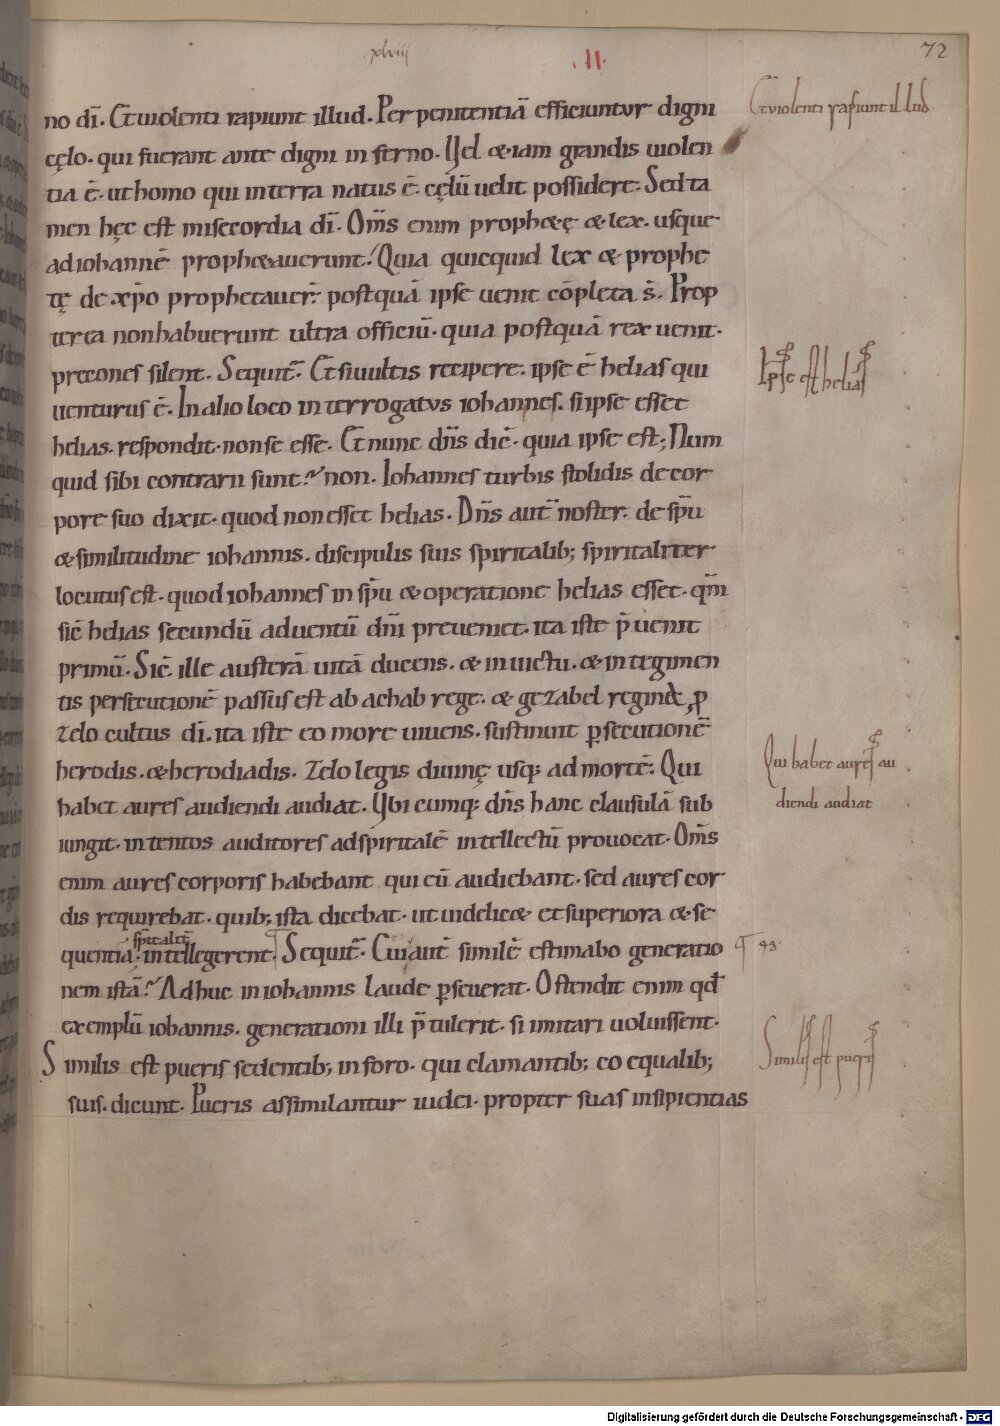 xlviii
.II.
72
no dī. Et uiolenti rapiunt illud. Per penitentiā efficiuntur digni
cęlo. qui fuerant ante digni inferno. Vel etiam grandis uiolen
tia ē. ut homo qui in terra natus ē. cęlū uelit possidere. Sed ta
men hęc est misericordia dī. Om̄s enim prophetę et lex. usque
ad iohannē prophetauerunt. Quia quicquid lex et prophe
tę de xp̄o prophetauer̄. postquā ipse uenit cōpleta s̄. Prop
terea non habuerunt ultra officiū. quia postquā rex uenit.
precones silent. Sequit̄. Et si uultis recipere. ipse ē helias qui
uenturus ē. In alio loco interrogatus iohannes. si ipse esset
helias. respondit. non se esse. Et nunc dn̄s dic̄. quia ipse est; Num
quid sibi contrarii sunt? non. Iohannes turbis stolidis de cor
pore suo dixit. quod non esset helias. Dn̄s aut̄ noster. de sp̄u
et similitudine iohannis. discipulis suis spiritalib; spiritaliter
locutus est. quod iohannes in sp̄u et operatione helias esset. qm̄
sic̄ helias secundū aduentū dn̄i preueniet. ita iste p̄uenit
primū. Sic̄ ille austerā uitā ducens. et in uictu. et in tegimen
tis persecutionē passus est ab achab rege. et gezabel regina. p
zelo cultus dī. ita iste eo more uiuens. sustinuit p̱secutionē
herodis. et herodiadis. Zelo legis diuinę usq; ad mortē. Qui
habet aures audiendi audiat. Vbi cumq; dn̄s hanc clausulā sub
iungit. intentos auditores ad spiritalē intellectū prouocat. Om̄s
enim aures corporis habebant qui cū audiebant. sed aures cor
dis requirebat. quib; ista dicebat. ut uidelicet et superiora et se
quentia. sp̄italit̄ intellegerent. Sequit̄. Cui aut̄ similē estimabo generatio
nem istā? Adhuc in iohannis laude p̱seuerat. Ostendit enim qd̄
exemplū iohannis. generationi illi p̄tulerit. si imitari uoluissent.
Similis est pueris sedentib; in foro. qui clamantib; coequalib;
suis. dicunt. Pueris assimilantur iudei. propter suas insipientias
Et uiolenti rapiunt illud
Ipse est helias
Qui habet aures au
diendi audiat
Similis est pueris
Digitalisierung gefördert durch die Deutsche Forschungsgemeinschaft - DFG